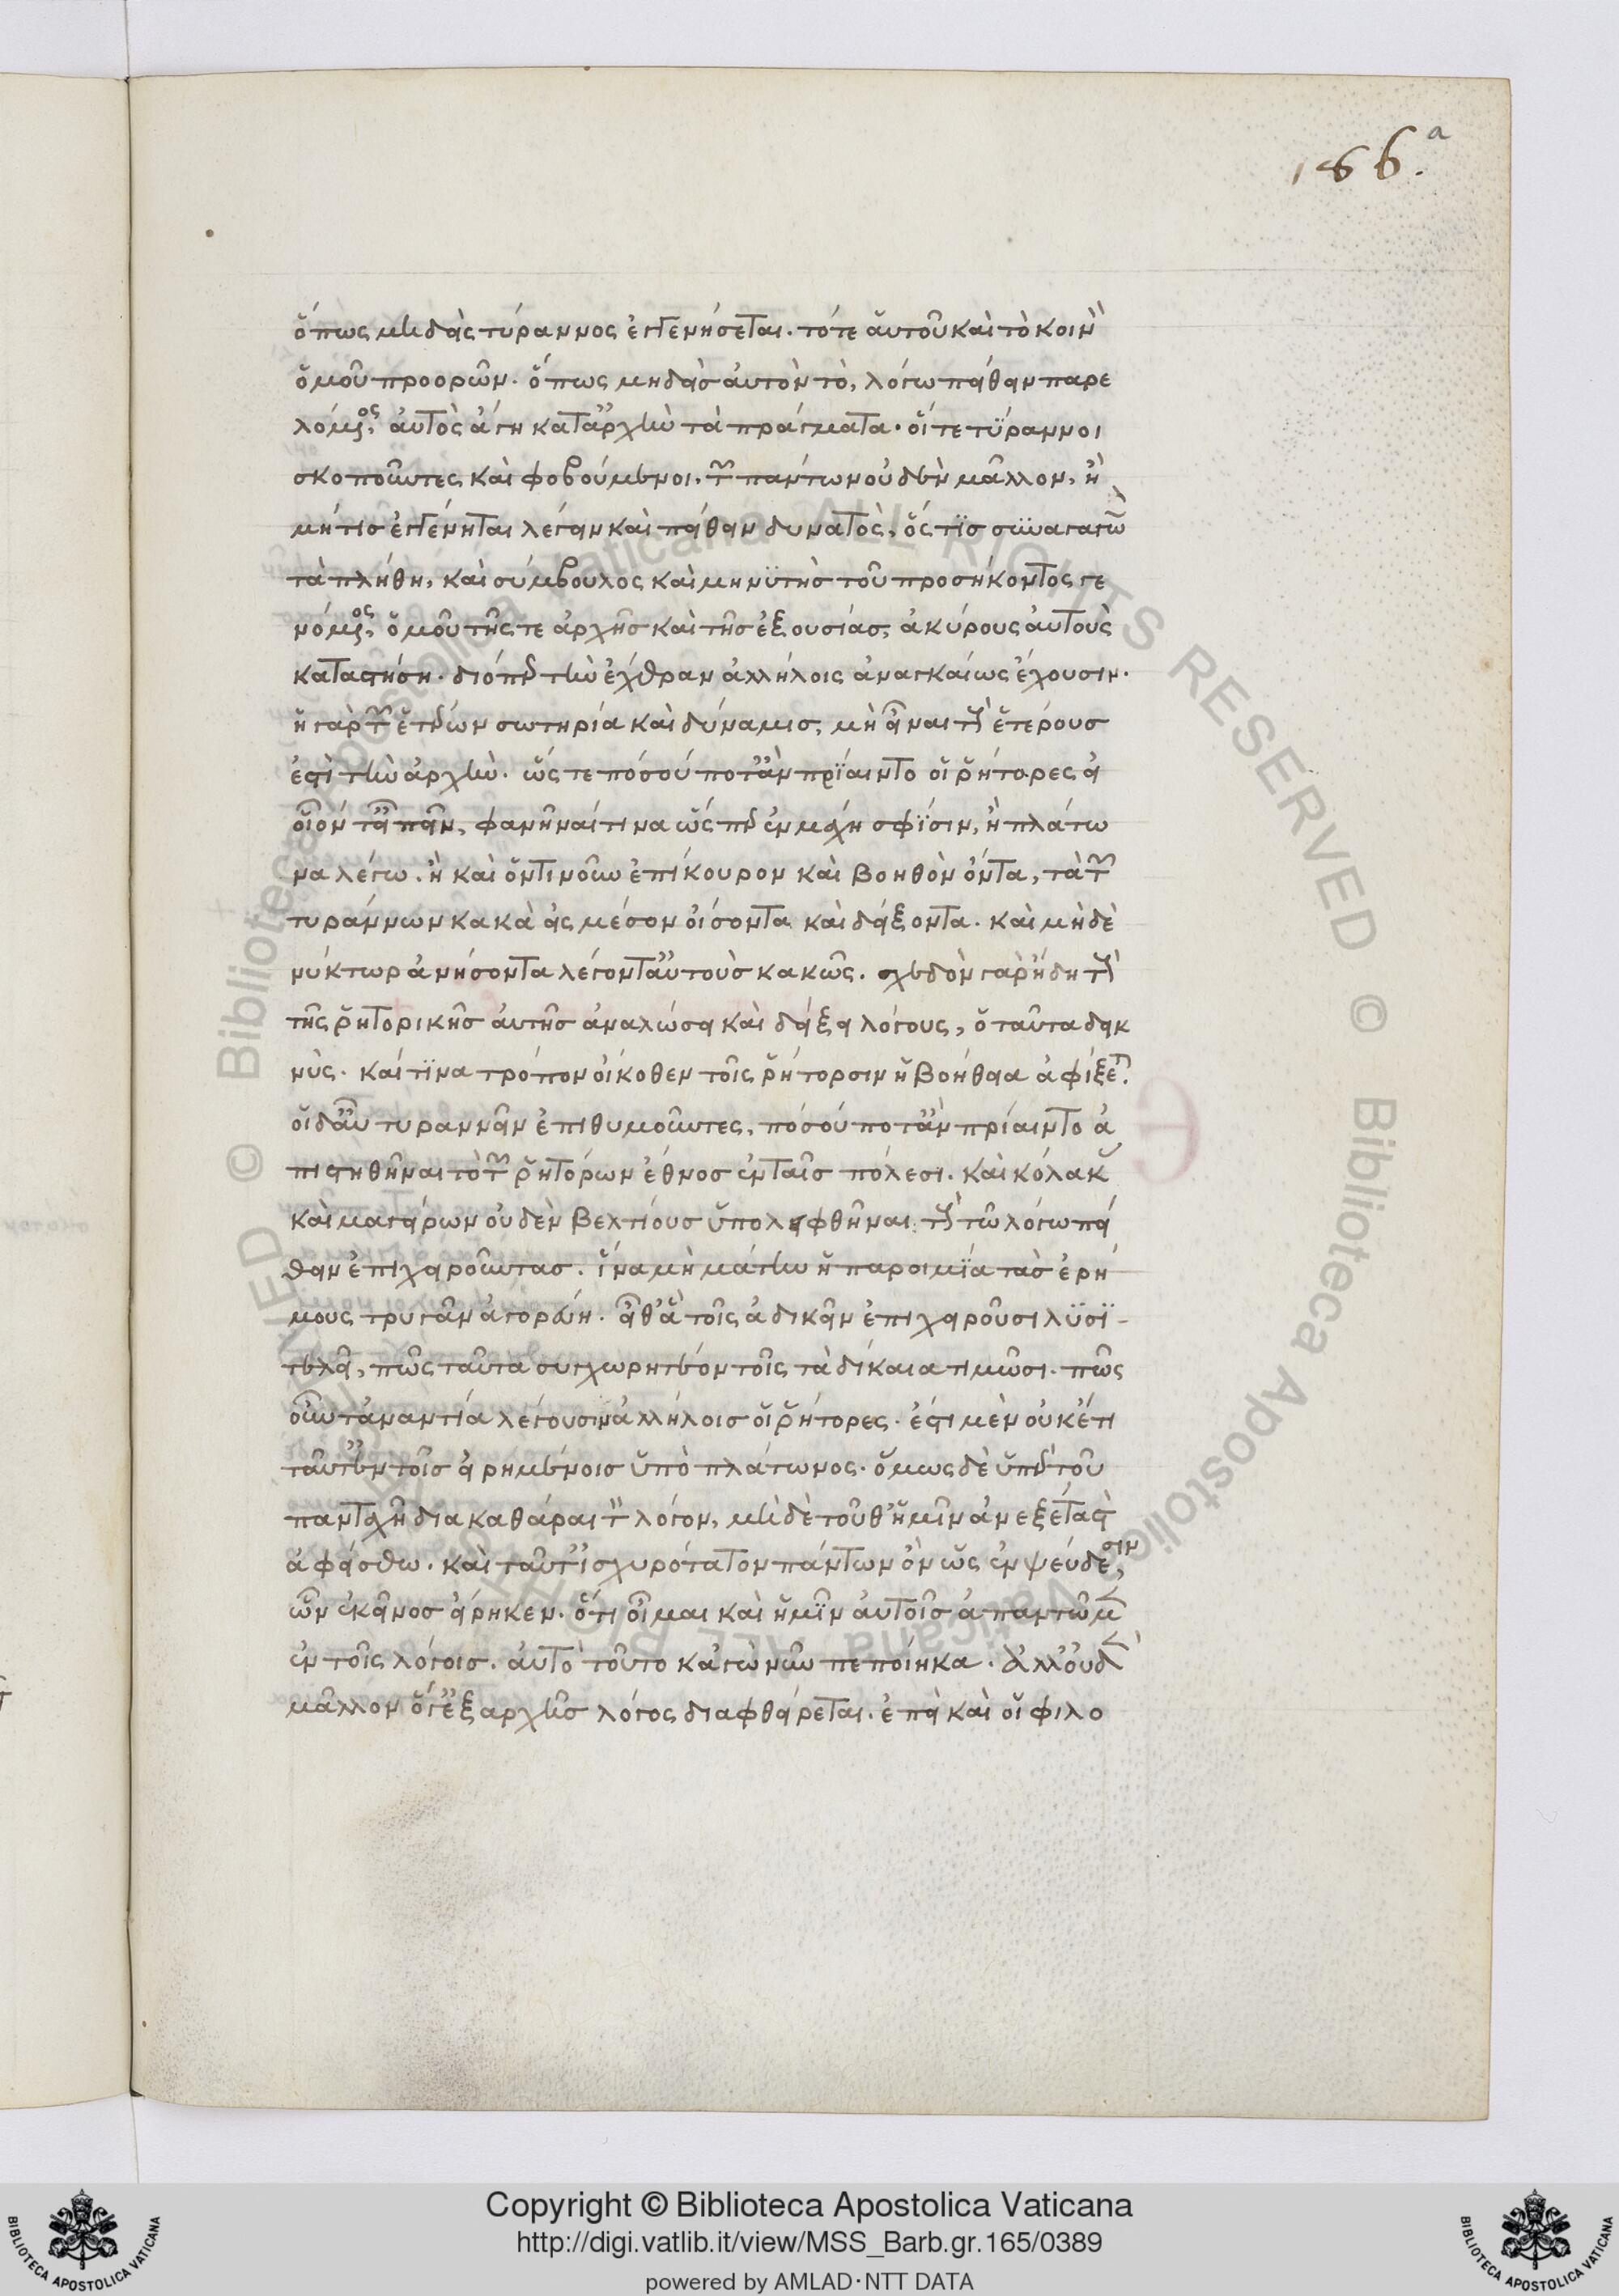 166.a
ὅπως μηδεὶς τύραννος ἐγγενήσεται. τότε αὑτοῦ καὶ τὸ κοινῇ
ὁμοῦ προορῶν. ὅπως μηδεὶς αὐτὸν τὸ, λόγω πείθειν παρε
λόμενος, αὐτὸς ἄγη κατ' ἀρχὴν τὰ πράγματα. οἵ τε τύραννοι
σκοποῦντες καὶ φοβούμενοι, τῶν πάντων οὐδὲν μᾶλλον, ἢ
μή τις ἐγγένηται λέγειν καὶ πείθειν δυνατὸς, ὅς τις συναγαγὼν
τὰ πλήθη, καὶ σύμβουλος καὶ μηνυτὴς τοῦ προσήκοντος γε
νόμενος, ὁμοῦ τῆς τε ἀρχῆς καὶ τῆς ἐξουσίας, ἀκύρους αὐτοὺς
καταστήση. διόπερ τὴν ἔχθραν ἀλλήλοις ἀναγκαίως ἔχουσιν.
ἡ γὰρ τῶν ἑτέρων σωτηρία καὶ δύναμις, μὴ εἶναι τοὺς ἑτέρους
ἐστὶ τὴν ἀρχὴν. ὥς τε πόσου ποτ' ἂν πρίαιντο οἱ ῥήτορες εἰ
οἷόν τ' εἰπεῖν, φανῆναί τινα ὥς περ ἐν μάχη σφίσιν, ἢ πλάτω
να λέγω. ἢ καὶ ὁντινοῦν ἐπίκουρον καὶ βοηθὸν ὄντα, τὰ τῶν
τυράννων κακὰ εἰς μέσον οἴσοντα καὶ δείξοντα. καὶ μηδὲ
νύκτωρ ἀνήσοντα λέγοντ' αὐτοὺς κακῶς. σχεδὸν γὰρ ἤδη τοὺς
τῆς ῥητορικῆς αὐτῆς ἀναλώσει καὶ δείξει λόγους, ὁ ταῦτα δεικ
νὺς. καί τινα τρόπον οἴκοθεν τοῖς ῥήτορσιν ἡ βοήθεια ἀφίξεται.
οἱ δ' αὖ τυραννεῖν ἐπιθυμοῦντες, πόσου ποτ' ἂν πρίαιντο ἀ
πιστηθῆναι τὸ τῶν ῥητόρων ἔθνος ἐν ταῖς πόλεσι. καὶ κόλακας
καὶ μαγείρων οὐδὲν βελτίους ὑποληφθῆναι τοὺς τῶ λόγω πεί
θειν ἐπιχειροῦντας. ἵνα μὴ μάτην ἡ παροιμία τὰς ἐρή
μους τρυγᾶν ἀγορεύη. εἶθ' ἃ τοῖς ἀδικεῖν ἐπιχειροῦσι λυσι-
τελεῖ, πῶς ταῦτα συγχωρητέον τοῖς τὰ δίκαια τιμῶσι. πῶς
οὖν τἀναντία λέγουσιν ἀλλήλοις οἱ ῥήτορες. ἔστι μὲν οὐκέτι
ταῦτ' ἐν τοῖς εἰρημένοις ὑπὸ πλάτωνος. ὅμως δὲ ὑπὲρ τοῦ
πανταχῇ διακαθᾶραι τὸν λόγον, μηδὲ τοῦθ' ἡμῖν ἀνεξέταστον
ἀφείσθω. καὶ ταῦτ' ἰσχυρότατον πάντων ὂν ὡς ἐν ψεύδεσιν,
ὧν ἐκεῖνος εἴρηκεν. ὅτι οἶμαι καὶ ἡμῖν αὐτοῖς ἀπαντῶμεν
ἐν τοῖς λόγοις. αὐτὸ τοῦτο κἀγὼ νῦν πεποίηκα. ἀλλ' οὐδὲν
μᾶλλον ὅγ' ἐξ ἀρχῆς λόγος διαφθείρεται. ἐπεὶ καὶ οἱ φιλο
Copyright © Biblioteca Apostolica Vaticana
http://digi.vatlib.it/view/MSS_Barb.gr.165/0389
powered by AMLAD·NTT DATA